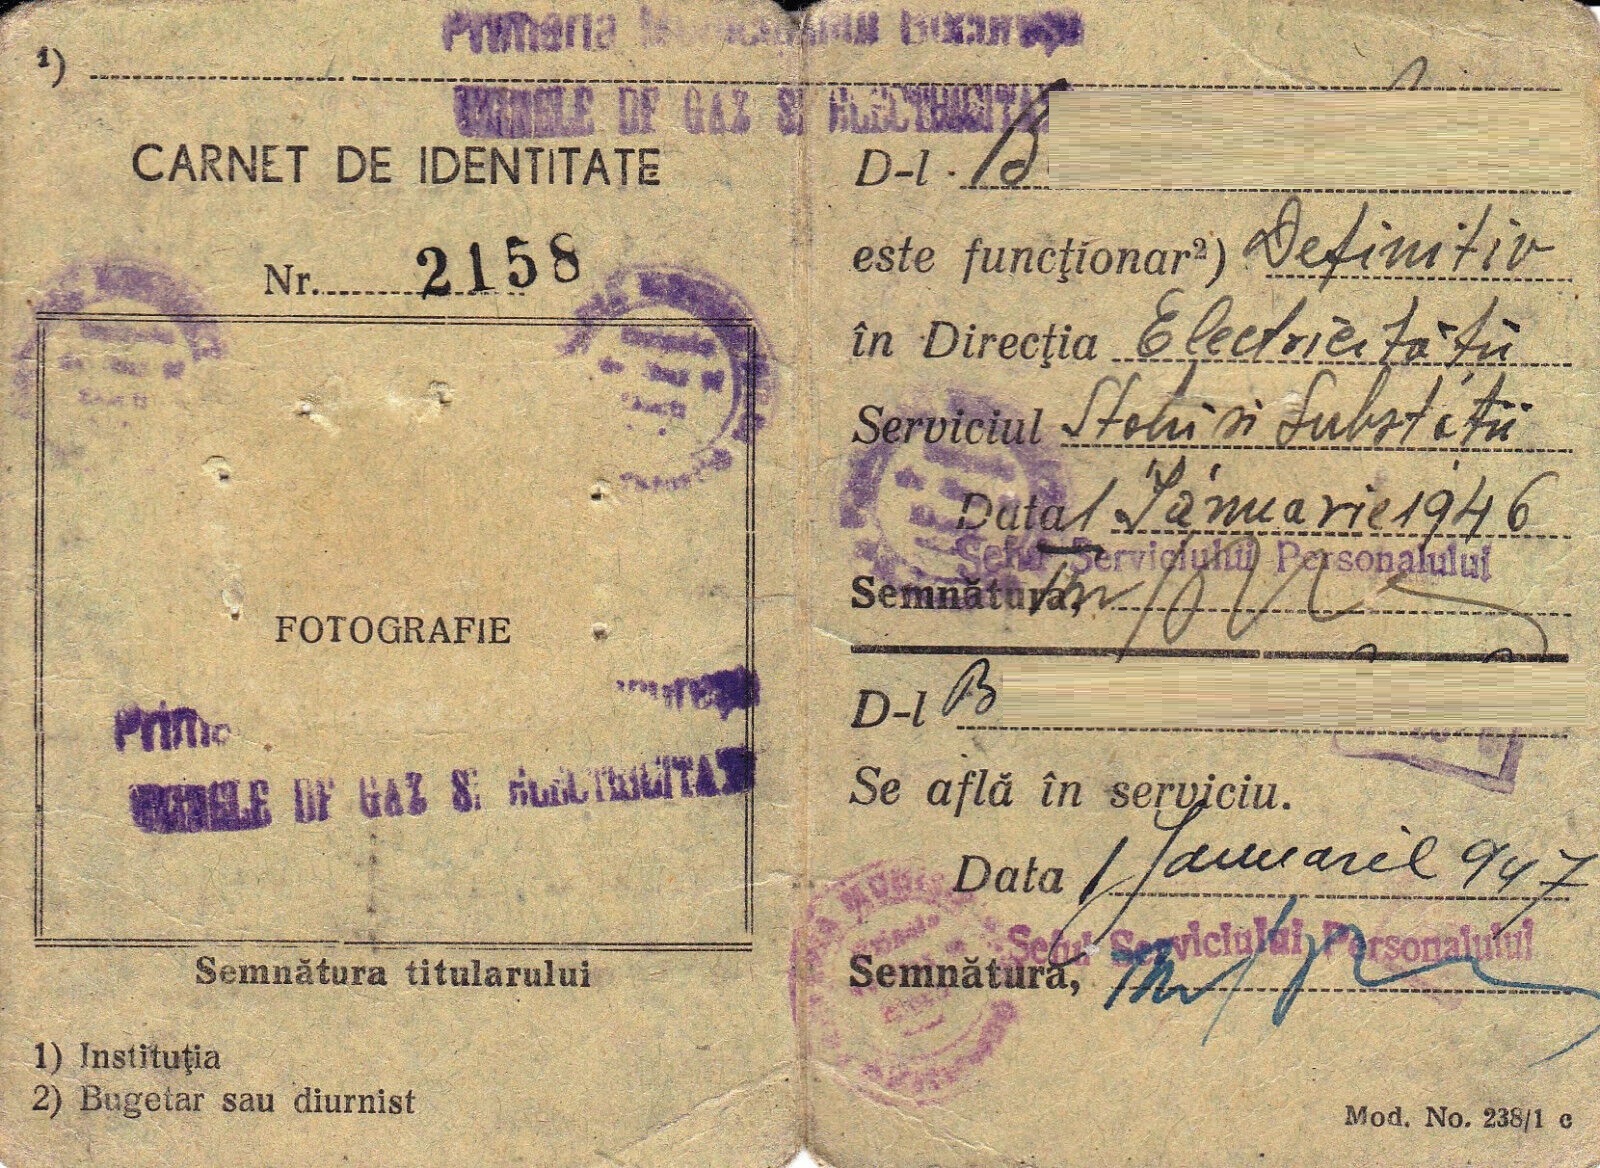 Primăria Municipiului București
UZINELE DE GAZ SI ELECTRICITATE
1)
CARNET DE IDENTITATE
Nr. 2158
FOTOGRAFIE
Prim
UZINELE DE GAZ SI ELECTRICITATE
Semnătura titularului
1) Instituţia
2) Bugetar sau diurnist
D-l B
este funcţionar²) Definitiv
în Direcţia Electricităţii
Serviciul si Substații
Data 1 Ianuarie 1946
Șeful Serviciului Personalului
Semnătura,
D-l B
Se află în serviciu.
Data 1 Ianuarie 947
Șeful Serviciului Personalului
Semnătura,
Mod. No. 238/1 c